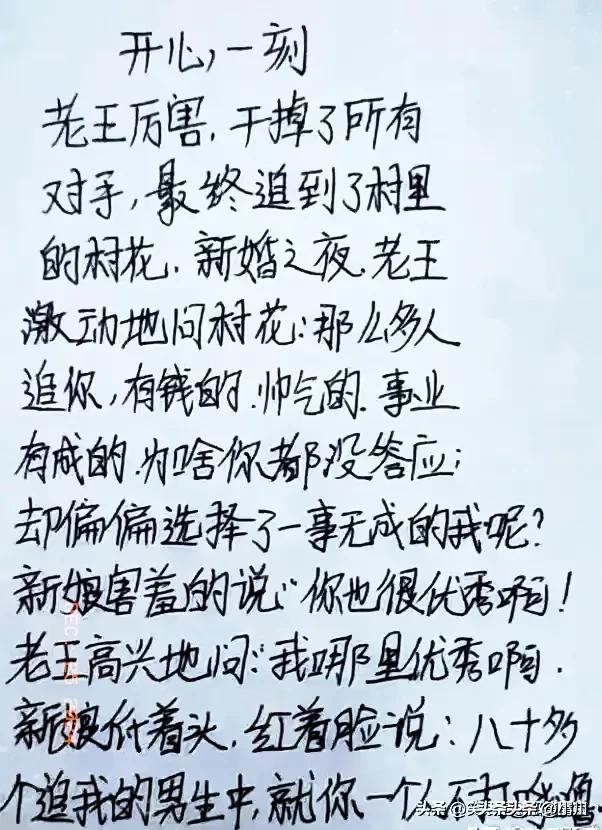 开心,一刻
老王厉害,干掉了所有
对手,最终追到了村里
的村花.新婚之夜.老王
激动地问村花:那么多人
追你,有钱的.帅气的.事业
有成的.为啥你都没答应;
却偏偏选择了一事无成的我呢?
新娘害羞的说:“你也很优秀啊!
老王高兴地问:“我哪里优秀啊.
新娘低着头.红着脸说:八十多
个追我的男生中,就你一个人不打呼噜.
头条@笑